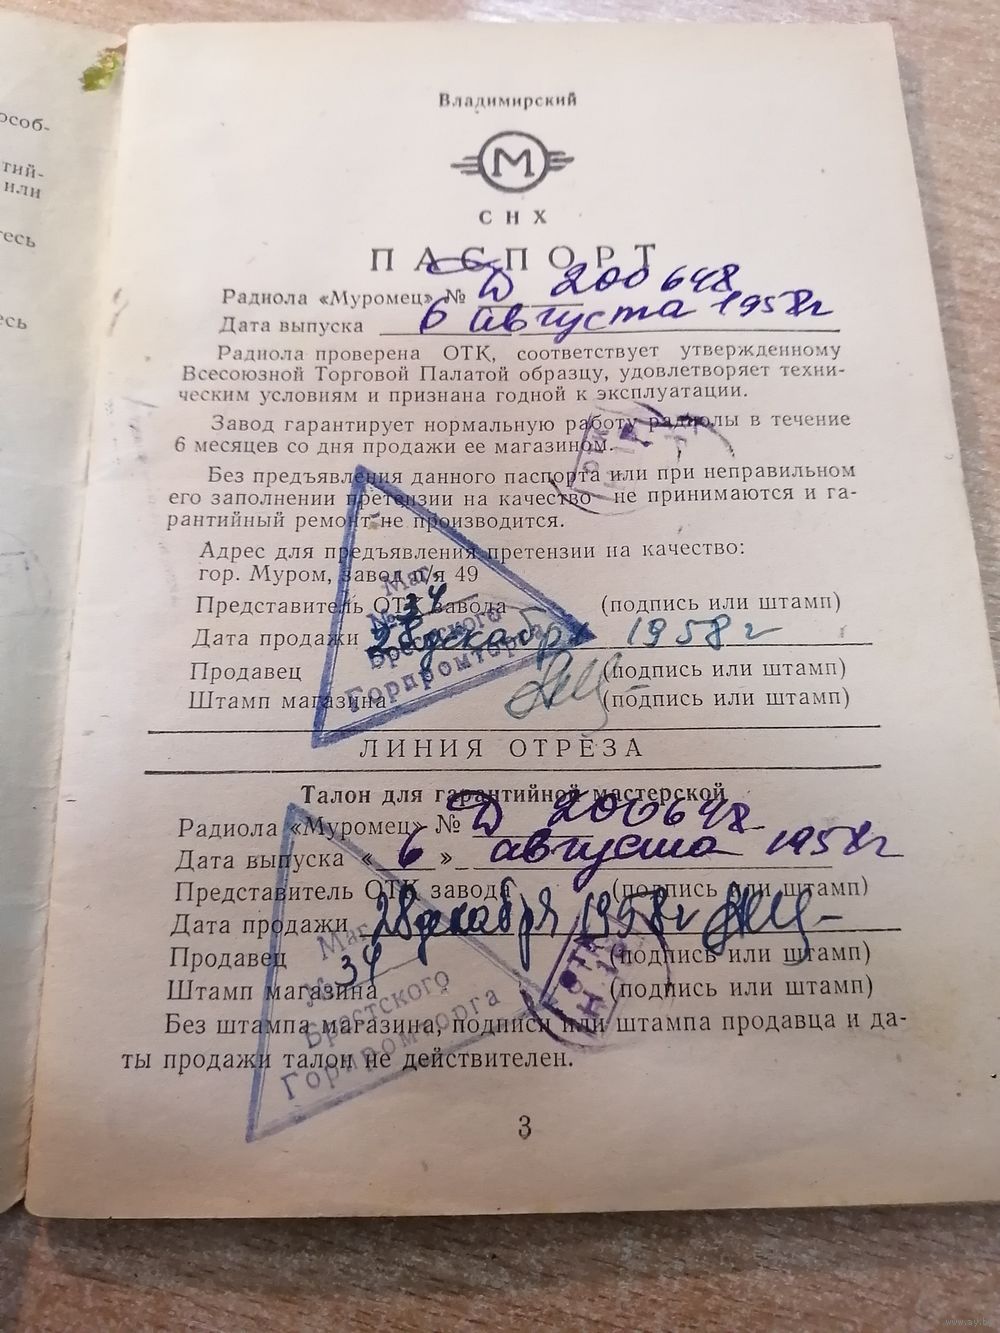 особ-
тий-
или
тесь
есь
Владимирский
М
СНХ
ПАСПОРТ
Радиола «Муромец» № Д 200648
Дата выпуска 6 августа 1958г
Радиола проверена ОТК, соответствует утвержденному
Всесоюзной Торговой Палатой образцу, удовлетворяет техни-
ческим условиям и признана годной к эксплуатации.
Завод гарантирует нормальную работу радиолы в течение
6 месяцев со дня продажи ее магазином.
Без предъявления данного паспорта или при неправильном
его заполнении претензии на качество не принимаются и га-
рантийный ремонт не производится.
Адрес для предъявления претензии на качество:
гор. Муром, завод п/я 49
Представитель ОТК завода (подпись или штамп)
Дата продажи 28 декабря 1958г
Продавец (подпись или штамп)
Штамп магазина (подпись или штамп)
Маг.
№ 34
Брестского
Горпромторга
ЛИНИЯ ОТРЕЗА
Талон для гарантийной мастерской
Радиола «Муромец» № Д 200648
Дата выпуска « 6 » августа 1958г
Представитель ОТК завода (подпись или штамп)
Дата продажи 28 декабря 1958г
Продавец (подпись или штамп)
Штамп магазина (подпись или штамп)
Маг.
№ 34
Брестского
Горпромторга
ОТК
Без штампа магазина, подписи или штампа продавца и да-
ты продажи талон не действителен.
3
www.ay.by